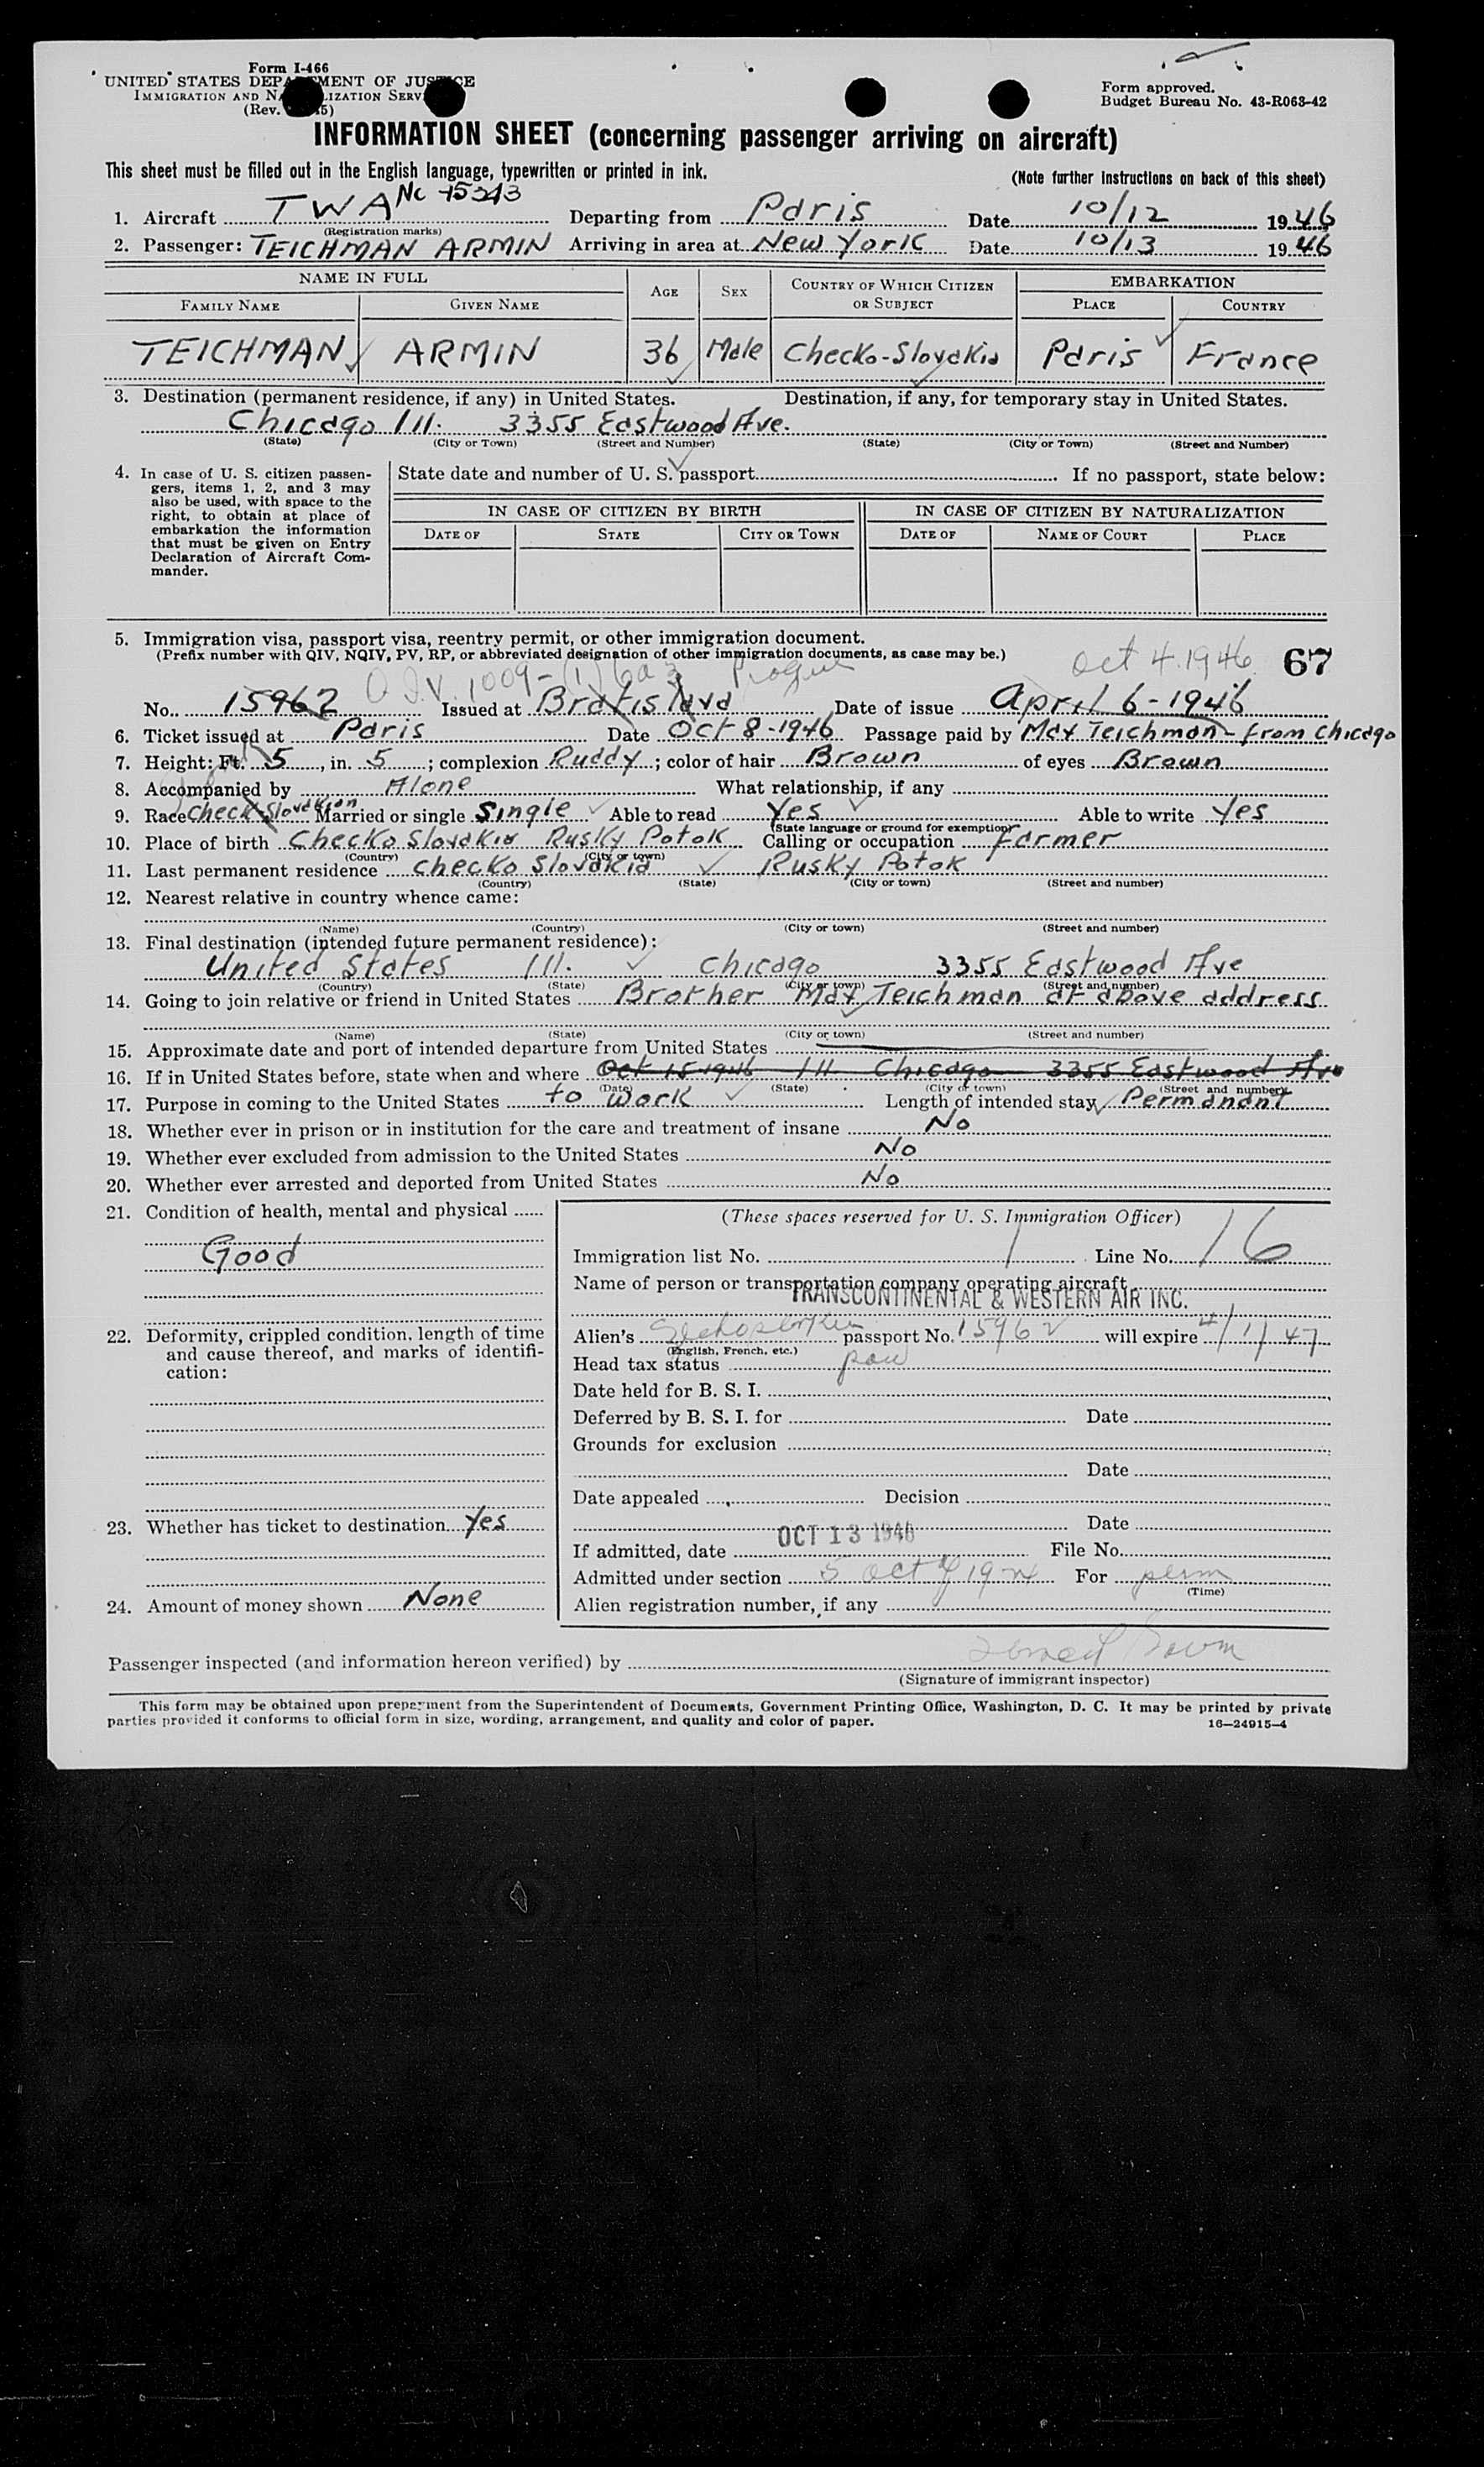 Form I-466
UNITED STATES DEPARTMENT OF JUSTICE
IMMIGRATION AND NATURALIZATION SERV
(Rev. 5)
Form approved.
Budget Bureau No. 43-R063-42
INFORMATION SHEET (concerning passenger arriving on aircraft)
This sheet must be filled out in the English language, typewritten or printed in ink.
(Note further instructions on back of this sheet)
1. Aircraft TWA Nc 75243 Departing from Paris Date 10/12 1946
(Registration marks)
2. Passenger: TEICHMAN ARMIN Arriving in area at New York Date 10/13 1946
NAME IN FULL AGE SEX COUNTRY OF WHICH CITIZEN OR SUBJECT EMBARKATION
FAMILY NAME GIVEN NAME PLACE COUNTRY
TEICHMAN ARMIN 36 Male Checko-Slovakia Paris France
3. Destination (permanent residence, if any) in United States. Destination, if any, for temporary stay in United States.
Chicago Ill. 3355 Eastwood Ave.
(State) (City or Town) (Street and Number) (State) (City or Town) (Street and Number)
4. In case of U. S. citizen passen-
gers, items 1, 2, and 3 may
also be used, with space to the
right, to obtain at place of
embarkation the information
that must be given on Entry
Declaration of Aircraft Com-
mander.
State date and number of U. S. passport If no passport, state below:
IN CASE OF CITIZEN BY BIRTH IN CASE OF CITIZEN BY NATURALIZATION
DATE OF STATE CITY OR TOWN DATE OF NAME OF COURT PLACE
5. Immigration visa, passport visa, reentry permit, or other immigration document.
(Prefix number with QIV, NQIV, PV, RP, or abbreviated designation of other immigration documents, as case may be.)
Prague Oct 4. 1946 67
No. 15962 Issued at Bratislava Date of issue April 6-1946
6. Ticket issued at Paris Date Oct 8-1946 Passage paid by Max Teichman - from Chicago
7. Height: Ft. 5, in. 5; complexion Ruddy; color of hair Brown of eyes Brown
8. Accompanied by Alone What relationship, if any
9. Race Checkslovakian Married or single Single Able to read Yes Able to write Yes
(State language or ground for exemption)
10. Place of birth Checko Slovakia Rusky Potok Calling or occupation Farmer
(Country) (City or town)
11. Last permanent residence Checko Slovakia Rusky Potok
(Country) (State) (City or town) (Street and number)
12. Nearest relative in country whence came:
(Name) (Country) (City or town) (Street and number)
13. Final destination (intended future permanent residence):
United States Ill. Chicago 3355 Eastwood Ave
(Country) (State) (City or town) (Street and number)
14. Going to join relative or friend in United States Brother Max Teichman at above address
(Name) (State) (City or town) (Street and number)
15. Approximate date and port of intended departure from United States
16. If in United States before, state when and where Oct 15 1946 Ill Chicago 3355 Eastwood Ave
(Date) (State) (City or town) (Street and number)
17. Purpose in coming to the United States to work Length of intended stay Permanant
18. Whether ever in prison or in institution for the care and treatment of insane No
19. Whether ever excluded from admission to the United States No
20. Whether ever arrested and deported from United States No
21. Condition of health, mental and physical
Good
22. Deformity, crippled condition, length of time
and cause thereof, and marks of identifi-
cation:
23. Whether has ticket to destination Yes
24. Amount of money shown None
(These spaces reserved for U. S. Immigration Officer)
Immigration list No. 1 Line No. 16
Name of person or transportation company operating aircraft
TRANSCONTINENTAL & WESTERN AIR INC.
Alien's passport No. 15962 will expire 4/1/47
(English, French, etc.)
Head tax status
Date held for B. S. I.
Deferred by B. S. I. for Date
Grounds for exclusion
Date
Date appealed Decision
Date
If admitted, date OCT 13 1946 File No.
Admitted under section 5 Oct For perm
(Time)
Alien registration number, if any
Passenger inspected (and information hereon verified) by
(Signature of immigrant inspector)
This form may be obtained upon prepayment from the Superintendent of Documents, Government Printing Office, Washington, D. C. It may be printed by private
parties provided it conforms to official form in size, wording, arrangement, and quality and color of paper. 16—24915-4